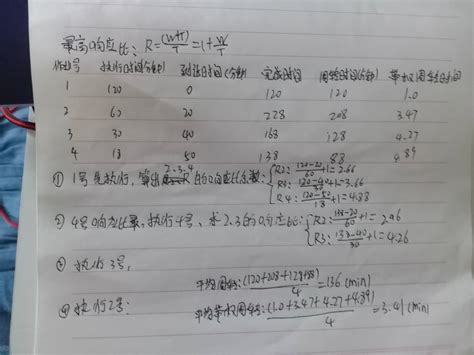 最高响应比: R=(W+T)/T=1+W/T
作业号 执行时间(分钟) 到达时间(分钟) 完成时间 周转时间(分钟) 带权周转时间
1 120 0 120 120 1.0
2 60 20 228 208 3.47
3 30 40 168 128 4.27
4 18 50 138 88 4.89
① 1号先执行, 算出2.3.4的响应比: R2: (120-20)/60+1=2.66
R3: (120-40)/30+1=3.66
R4: (120-50)/18+1=4.88
② 4号响应比最, 执行4号, 求2.3的响应比: R2: (138-20)/60+1=2.96
R3: (138-40)/30+1=4.26
③ 执行3号,
平均周转: (120+208+128+88)/4=136(min)
④ 执行2号:
平均带权周转: (1.0+3.47+4.27+4.89)/4=3.41(min)